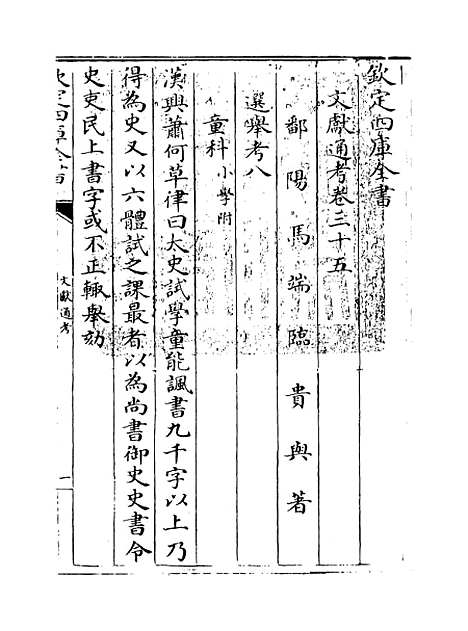 欽定四庫全書
文獻通考卷三十五
鄱陽馬端臨貴與著
選舉考八
童科小學附
漢興蕭何草律曰太史試學童能諷書九千字以上乃
得為史又以六體試之課最者以為尚書御史史書令
史吏民上書字或不正輙舉劾
欽定四庫全書
文獻通考
一